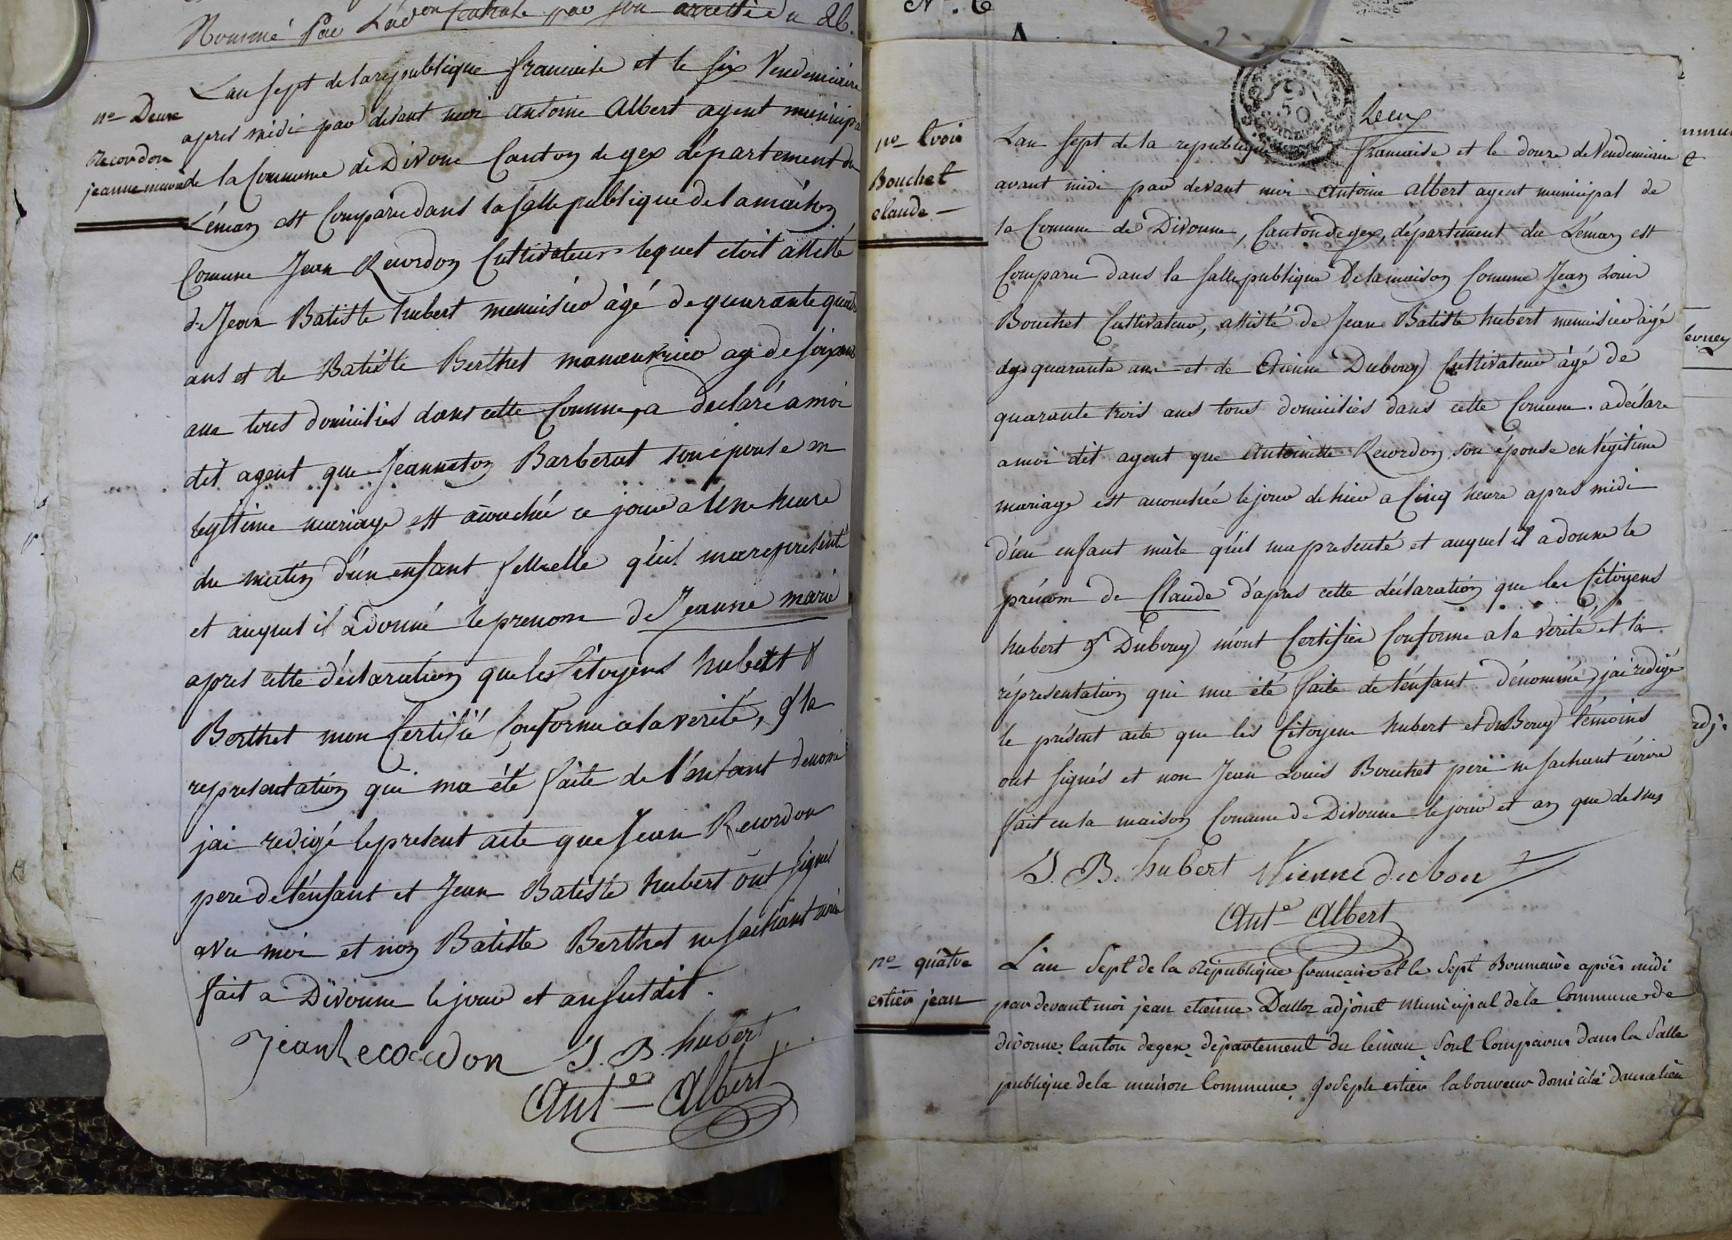 Nommé par L'adon Centrale par son arrettée du 26.
L'an sept de la republique francaise et le six Vendemiaire
nº Deux
apres midi par devant moi antoine Albert agent municip
Recordon
jeanne marie
de la Commune de Divone Canton de gex departement du
Léman est Comparu dans la salle publique de la maison
Comune Jean Recordon Cultivateur lequel etoit assisté
de Jean Batiste hubert menuisier âgé de quarante quatre
ans et de Batiste Berthet manoeuvrier agé de soixante
ans tous domiciliés dans cette Comune, a declaré a moi
dit agent que Jeanneton Barberat son épouse en
legitime mariage est acouchée ce jour a Une heure
du matin d'un enfant femelle qu'il ma representé
et auquel il a donné le prenom de Jeanne marie
apres cette déclaration que les Citoyens hubert &
Berthet mon Certifié Conforme a la verité, & la
representation qui ma été faite de l'enfant denomé
jai redigé le present acte que Jean Recordon
pere de l'enfant et Jean Batiste hubert ont signés
avec moi et non Batiste Berthet ne sachant ecrire
fait a Divonne le jour et an susdit.
Jean Recordon J. B. hubert
Ant.e Albert
Nº. 6
50
deux
nº trois
Bouchet
claude
L'an sept de la republique francaise et le douze de Vendemiaire
avant midi par devant moi Antoine albert agent municipal de
la Comune de Divonne, Canton de gex, département du Léman est
Comparu dans la salle publique de la maison Comune Jean Louis
Bouchet Cultivateur, assisté de Jean Batiste hubert menuisier âgé
de quarante ans et de Etienne Dubouy Cultivateur âgé de
quarante trois ans tous domiciliés dans cette Comune. a déclaré
a moi dit agent que Antoinette Recordon son épouse en légitime
mariage est acouchée le jour de hier a Cinq heure apres midi
d'un enfant mâle qu'il ma presenté et auquel il a donné le
prénom de Claude d'apres cette déclaration que les Citoyens
hubert & Dubouy m'ont Certifié Conforme a la verité et la
répresentation qui ma été faite de l'enfant dénommé, jai redigé
le présent acte que les Citoyens hubert et duBouy témoins
ont signés et non Jean Louis Bouchet pere ne sachant écrire
fait en la maison Comune de Divonne le jour et an que dessus
J. B. hubert etienne dubou
Ant.e Albert
nº quâtre
estier jean
L'an Sept de la république francaise et le sept Brumaire après midi
par devant moi jean etienne Dalloz adjoint municipal de la Commune de
divonne Canton de gex, département du léman, sont Comparus dans la Salle
publique de la maison Commune, joseph estier laboureur domicilié dans ce lieu
adj.